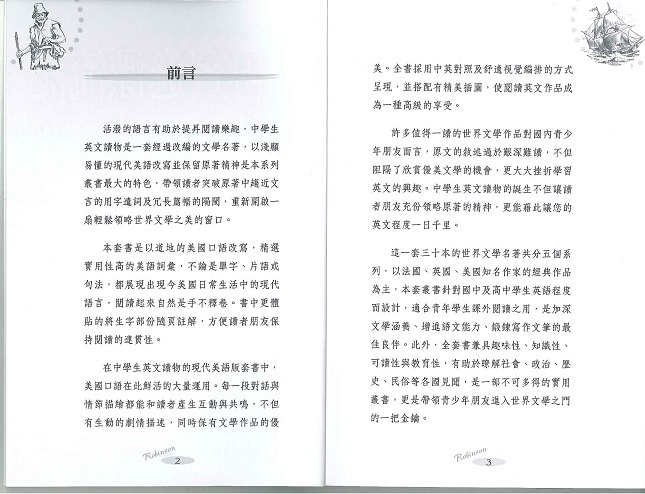 前言
活潑的語言有助於提昇閱讀樂趣，中學生
英文讀物是一套經過改編的文學名著，以淺顯
易懂的現代美語改寫並保留原著精神是本系列
叢書最大的特色，帶領讀者突破原著中趨近文
言的用字遣詞及冗長篇幅的隔閡，重新開啟一
扇輕鬆領略世界文學之美的窗口。
本套書是以道地的美國口語改寫，精選
實用性高的美語詞彙，不論是單字、片語或
句法，都展現出現今美國日常生活中的現代
語言，閱讀起來自然是手不釋卷。書中更體
貼的將生字部份隨頁註解，方便讀者朋友保
持閱讀的連貫性。
在中學生英文讀物的現代美語版套書中，
美國口語在此鮮活的大量運用。每一段對話與
情節描繪都能和讀者產生互動與共鳴，不但
有生動的劇情描述，同時保有文學作品的優
Robinson
2
美。全書採用中英對照及舒適視覺編排的方式
呈現，並搭配有精美插圖，使閱讀英文作品成
為一種高級的享受。
許多值得一讀的世界文學作品對國內青少
年朋友而言，原文的敘述過於艱深難讀，不但
阻隔了欣賞優美文學的機會，更大大挫折學習
英文的興趣。中學生英文讀物的誕生不但讓讀
者朋友充份領略原著的精神，更能藉此讓您的
英文程度一日千里。
這一套三十本的世界文學名著共分五個系
列，以法國、英國、美國知名作家的經典作品
為主，本套叢書針對國中及高中學生英語程度
而設計，適合青年學生課外閱讀之用，是加深
文學涵養、增進語文能力、鍛鍊寫作文筆的最
佳良伴。此外，全套書兼具趣味性、知識性、
可讀性與教育性，有助於瞭解社會、政治、歷
史、民俗等各國見聞，是一部不可多得的實用
叢書，更是帶領青少年朋友進入世界文學之門
的一把金鑰。
Robinson
3